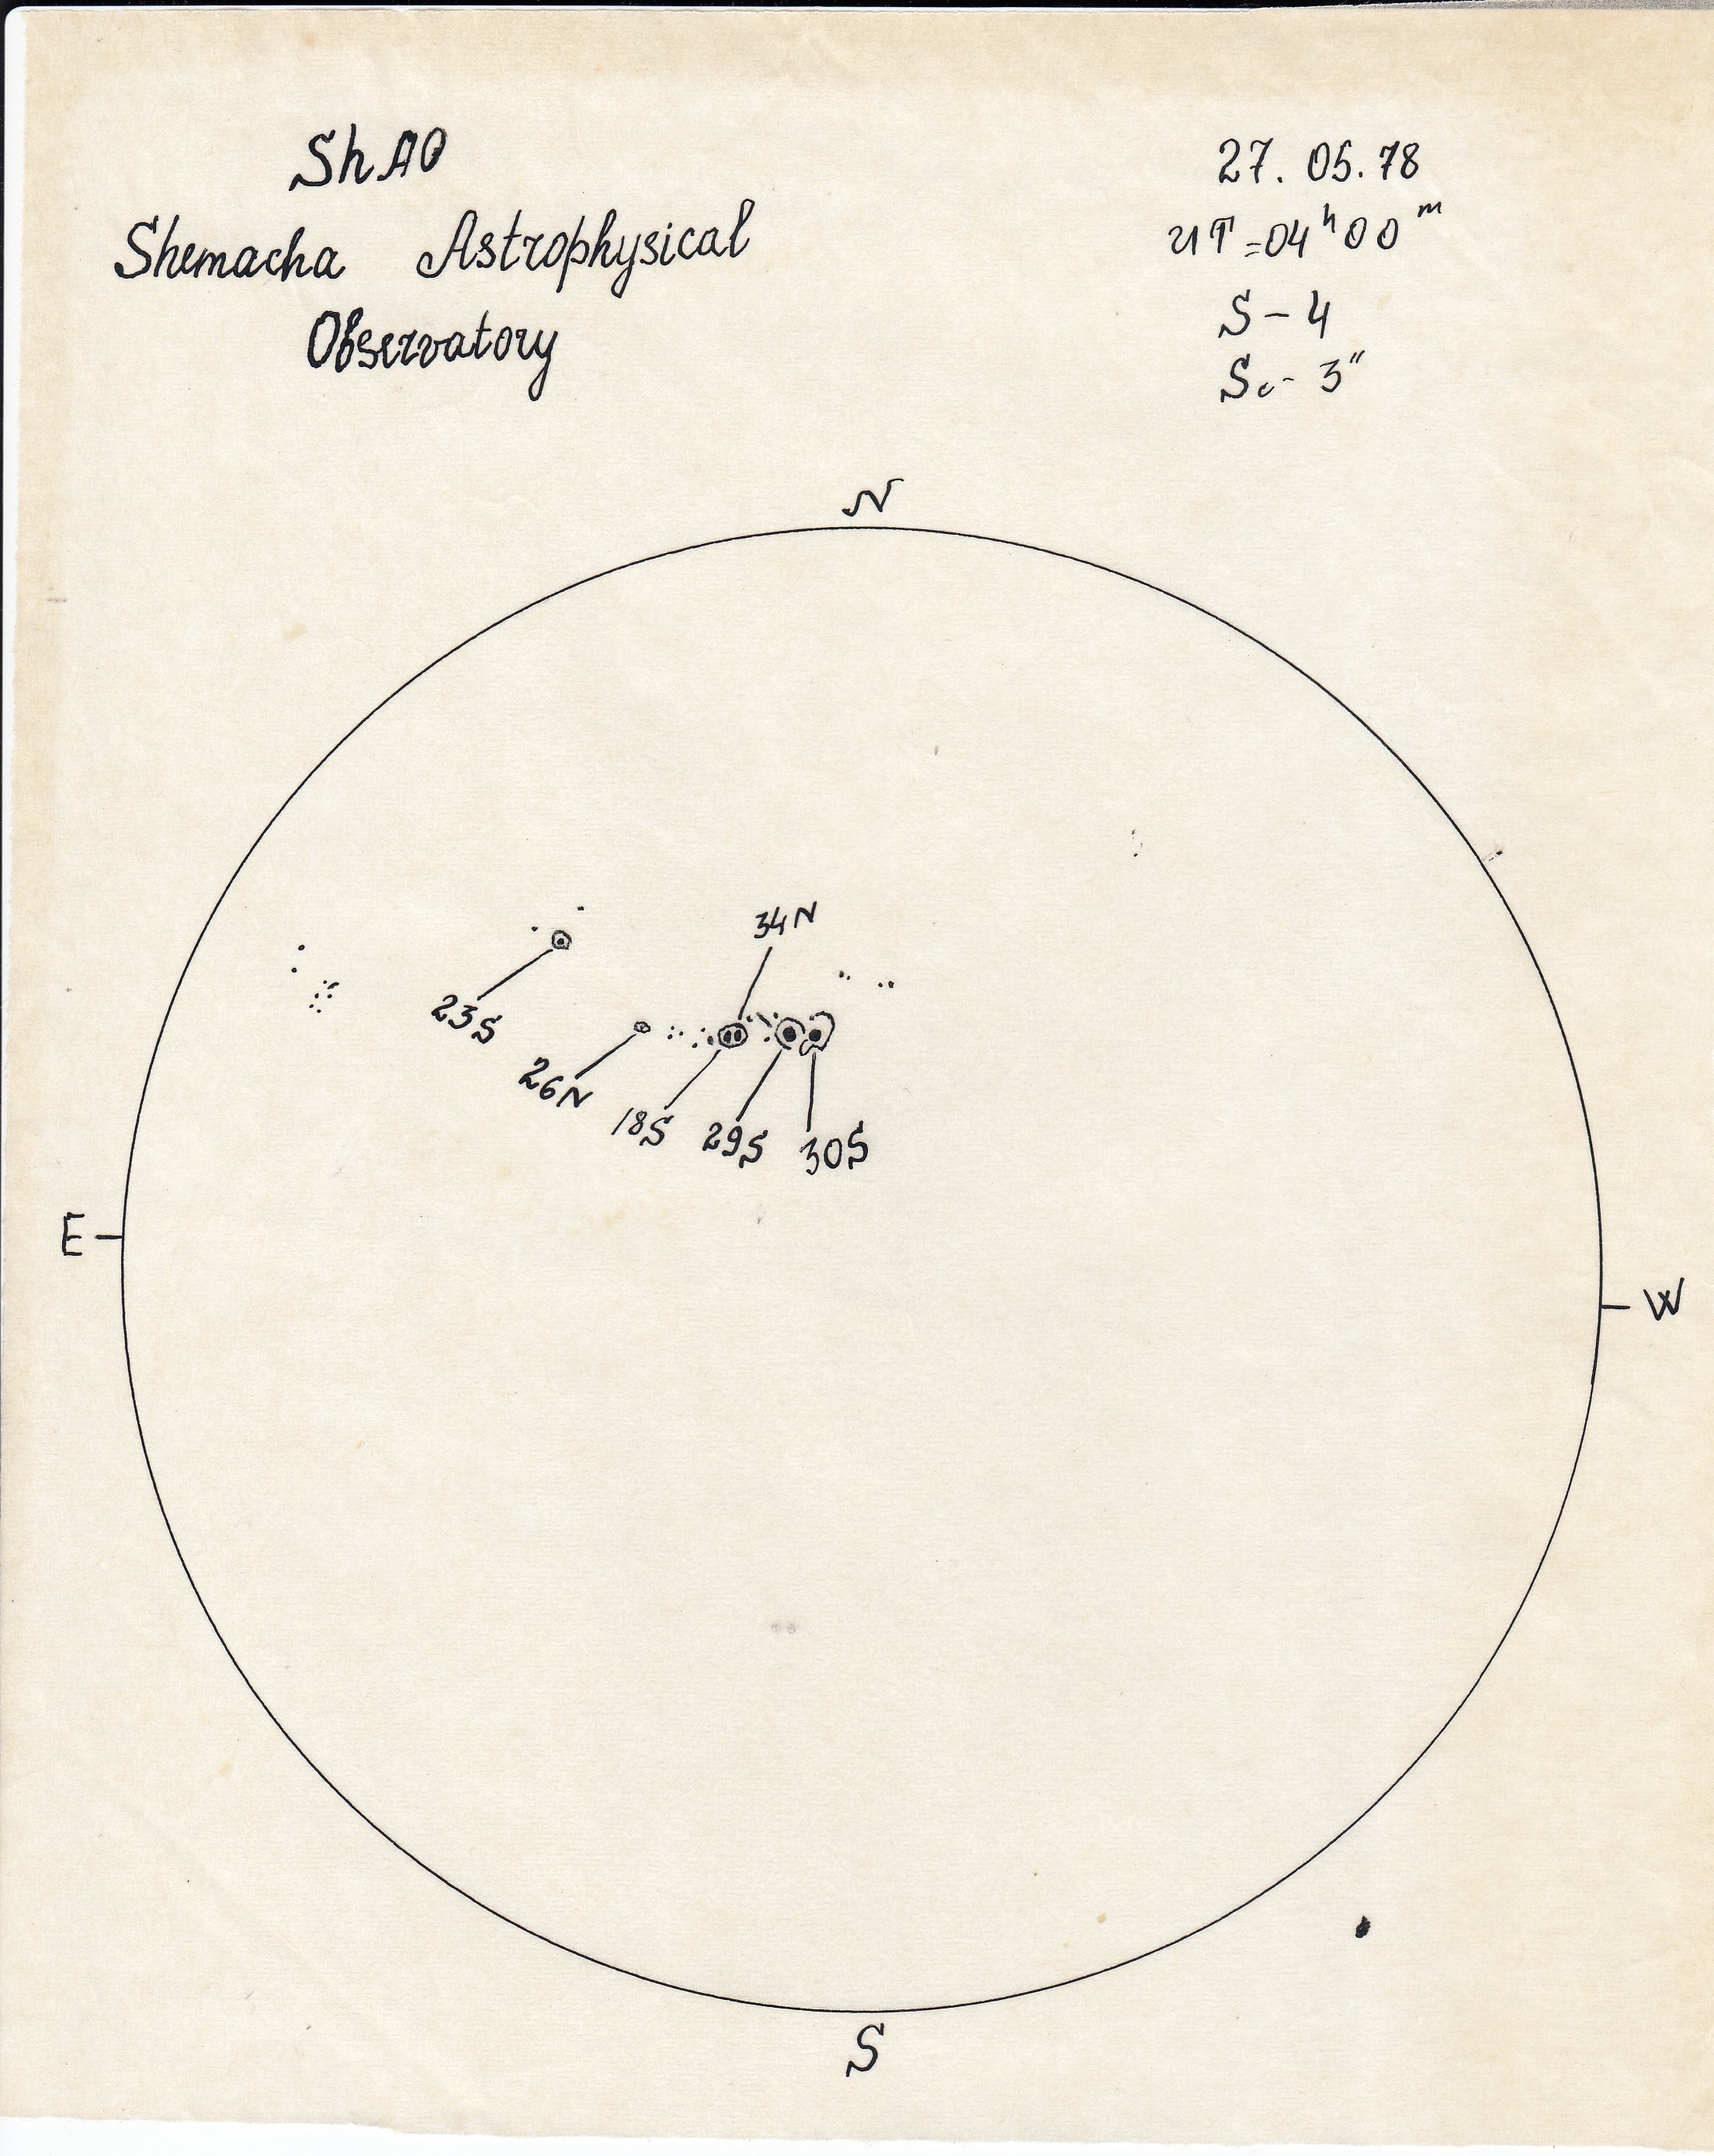 ShAO
Shemacha Astrophysical
Observatory
27. 05. 78
UT=04ʰ00ᵐ
S-4
Sc-3"
N
34N
23S
26N
18S 29S 30S
E
W
S